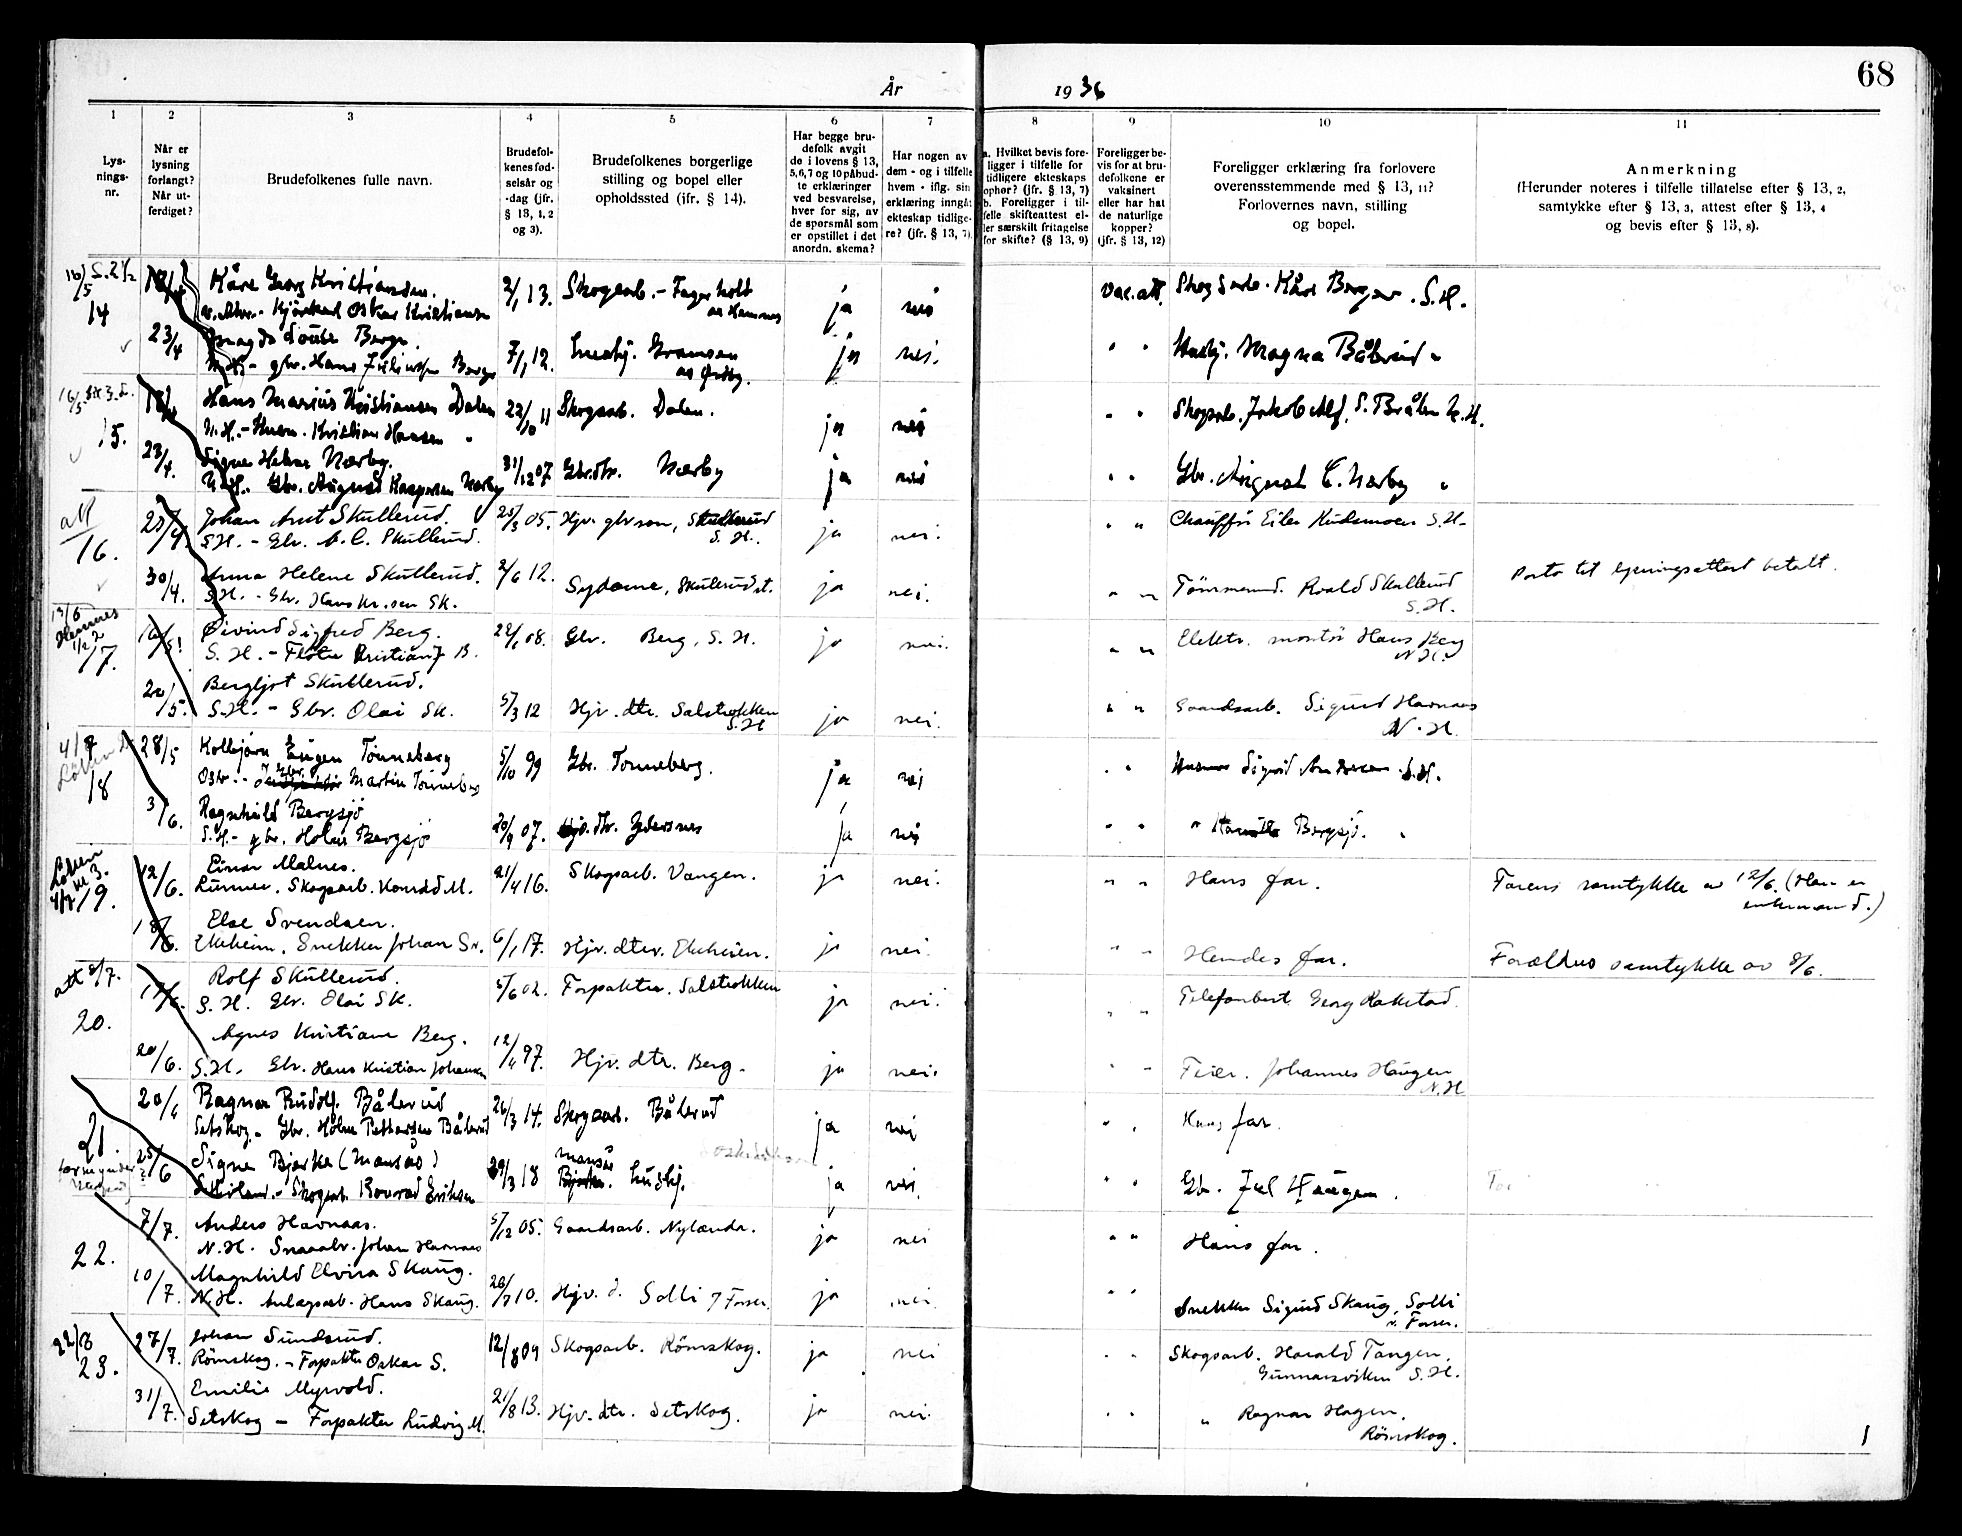 68
År 1936
1 2 3 4 5 6 7 8 9 10 11
Lys-
nings-
nr.
Når er
lysning
forlangt?
Når ut-
ferdiget?
Brudefolkenes fulle navn.
Brudefol-
kenes fød-
selsår og
-dag (jfr.
§ 13, 1, 2
og 3).
Brudefolkenes borgerlige
stilling og bopel eller
opholdssted (jfr. § 14).
Har begge bru-
defolk avgit
de i lovens § 13,
5,6,7 og 10 påbud-
te erklæringer
ved besvarelse,
hver for sig, av
de spørsmål som
er opstillet i det
anordn. skema?
Har nogen av
dem - og i tilfelle
hvem - iflg. sin
erklæring inngåt
ekteskap tidlige-
re? (jfr. § 13, 7)
a. Hvilket bevis fore-
ligger i tilfelle for
tidligere ekteskaps
ophør? (jfr. § 13, 7)
b. Foreligger i til-
felle skifteattest el-
ler særskilt fritagelse
for skifte? (§ 13, 9)
Foreligger be-
vis for at bru-
defolkene er
vaksinert
eller har hat
de naturlige
kopper?
(jfr. § 13, 12)
Foreligger erklæring fra forlovere
overensstemmende med § 13, 11?
Forlovernes navn, stilling
og bopel.
Anmerkning
(Herunder noteres i tilfelle tillatelse efter § 13, 2,
samtykke efter § 13, 3, attest efter § 13, 4
og bevis efter § 13, 8).
14 Kåre Georg Kristiansen. 2/1 13. Skogsarb. - Fagerholt ja nei vac.att. Skogsarb. Kåre Berger. S.H.
Oskar Kristiansen
23/4 Magda Louise Berge. 7/1 12. ja nei. " " Magna Bålerud "
gbr. Hans Berge
15. Hans Marius Kristiansen Dalen 22/10 11 Skogsarb. Dalen. ja nei " " Skogsarb. Jakob Alf. S. Bråten N.H.
N.H. - Kristian Hansen "
23/4. Signe Helene Nærby. 31/12 07 Gbr.dtr. Nærby ja nei " " Gbr. August C. Nærby "
N.H. Gbr. August Kaspersen Nærby
att
16. 23/4. Johan Arnt Skullerud. 25/3 05. Hjv. gbr søn, Skullerud S.H. ja nei. " " Chauffør Eiler Hudemoen S.H.
S.H. - Gbr. A. C. Skullerud.
30/4. Anna Helene Skullerud. 2/6 12. Sydame, Skullerud st. ja nei. " " Tømmerm. Roald Skullerud S.H. Porto til lysningsattest betalt.
S.H. - Gbr. Hans Kr.sen Sk.
Hemnes
17. 16/5! Øivind Sigfred Berg. 22/1 08. Gbr. Berg, S.H. ja nei. " " Elektr. montør Hans Berg N.H.
S.H. - Fløter Kristian J. B.
20/5. Bergljot Skullerud. 5/3 12 Hjv. dtr. Salstrokken S.H ja nei. " " Gaardsarb. Sigurd Havnaas N.H.
S.H. - Gbr. Olai Sk.
18 28/5 Kolbjørn Eugen Tønneberg 5/10 99 Gbr. Tønneberg. ja nei " " Sigrid Andersen S.H.
Martin Tønneberg
3/6. Ragnhild Bergsjø 20/9 07. Hjv. dtr. Ydersnes ja nei " " " Bergsjø. "
S.H. - gbr. Holm Bergsjø
19. 12/6. Einar Malnes. 21/4 16. Skogsarb. Vangen. ja nei. " " Hans far. Farens samtykke av 12/6. (Han er enkemand.)
Skogsarb. Konrad M.
18/6. Else Svendsen. 6/1 17. Hjv. dter. Ekeheien. ja nei. " " Hendes far. Forældres samtykke av 8/6.
Ekeheim, Snekker Johan Sv.
att 8/7.
20. 17/6. Rolf Skullerud. 5/6 02. Forpakter. Salstrokken ja nei. " " Telefonbest. Georg Rakstad.
S.H. Gbr. Olai Sk.
20/6. Agnes Kristiane Berg. 12/4 97. Hjv. dtr. Berg. ja nei. " " Feier. Johannes Haugen N.H
S.H. Gbr. Hans Kristian Johansen
21. 20/6 Ragnar Rudolf Bålerud 26/3 14. Skogsarb. Bålerud ja nei " " Hans far.
Setskog. Gbr. Holm Pettersen Bålerud
25/6 Signe Bjerke (Mansås) 29/3 18 Mansås Bjerke. Hushj. ja nei. " " Gb. Juel Haugen.
Skogsarb. Konrad Eriksen
22. 7/7. Anders Havnaas. 5/12 05. Gaardsarb. Nylænda. ja nei " " Hans far.
N.H. Johan Havnaas
10/7. Magnhild Elvira Skaug. 20/7 10. Hjv. d. Solli / Fosser. ja nei " " Snekker Sigurd Skaug, Solli v. Fosser.
N.H. Anlægsarb. Hans Skaug.
22/8
23. 27/7. Johan Sundsrud. 12/8 09 Skogsarb. Römskog. ja nei " " Skogsarb. Harald Tangen, Gunnarsviken S.H.
Römskog. - Forpakter Oskar S.
31/7. Emilie Myrvold. 21/8 13. Hjv. dtr. Setskog. ja nei. " " " Ragnar Hagen, Römskog.
Setskog - Forpakter Ludvig M.